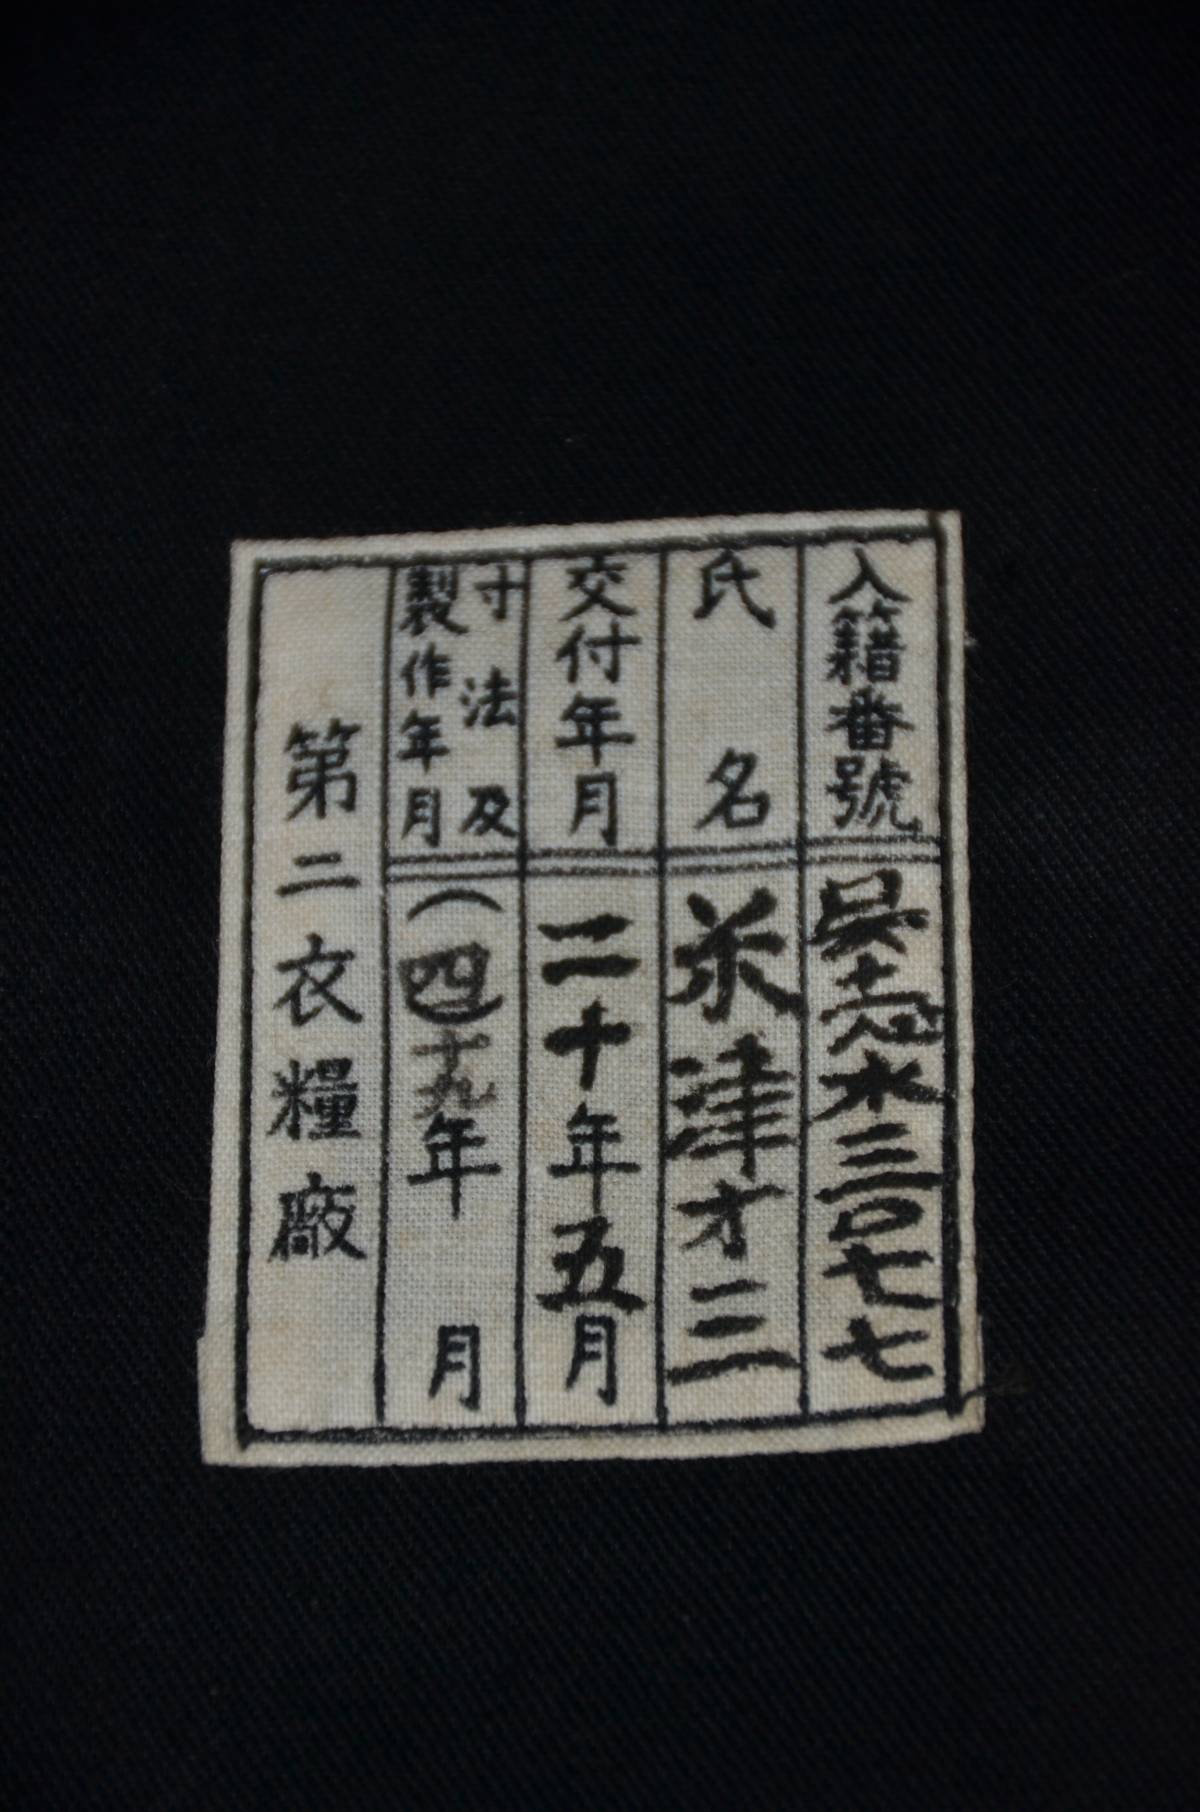 入籍番號
呉志水三〇七七
氏名
米津才二
交付年月
二十年五月
寸法及
製作年月
(四)十九年 月
第二衣糧廠